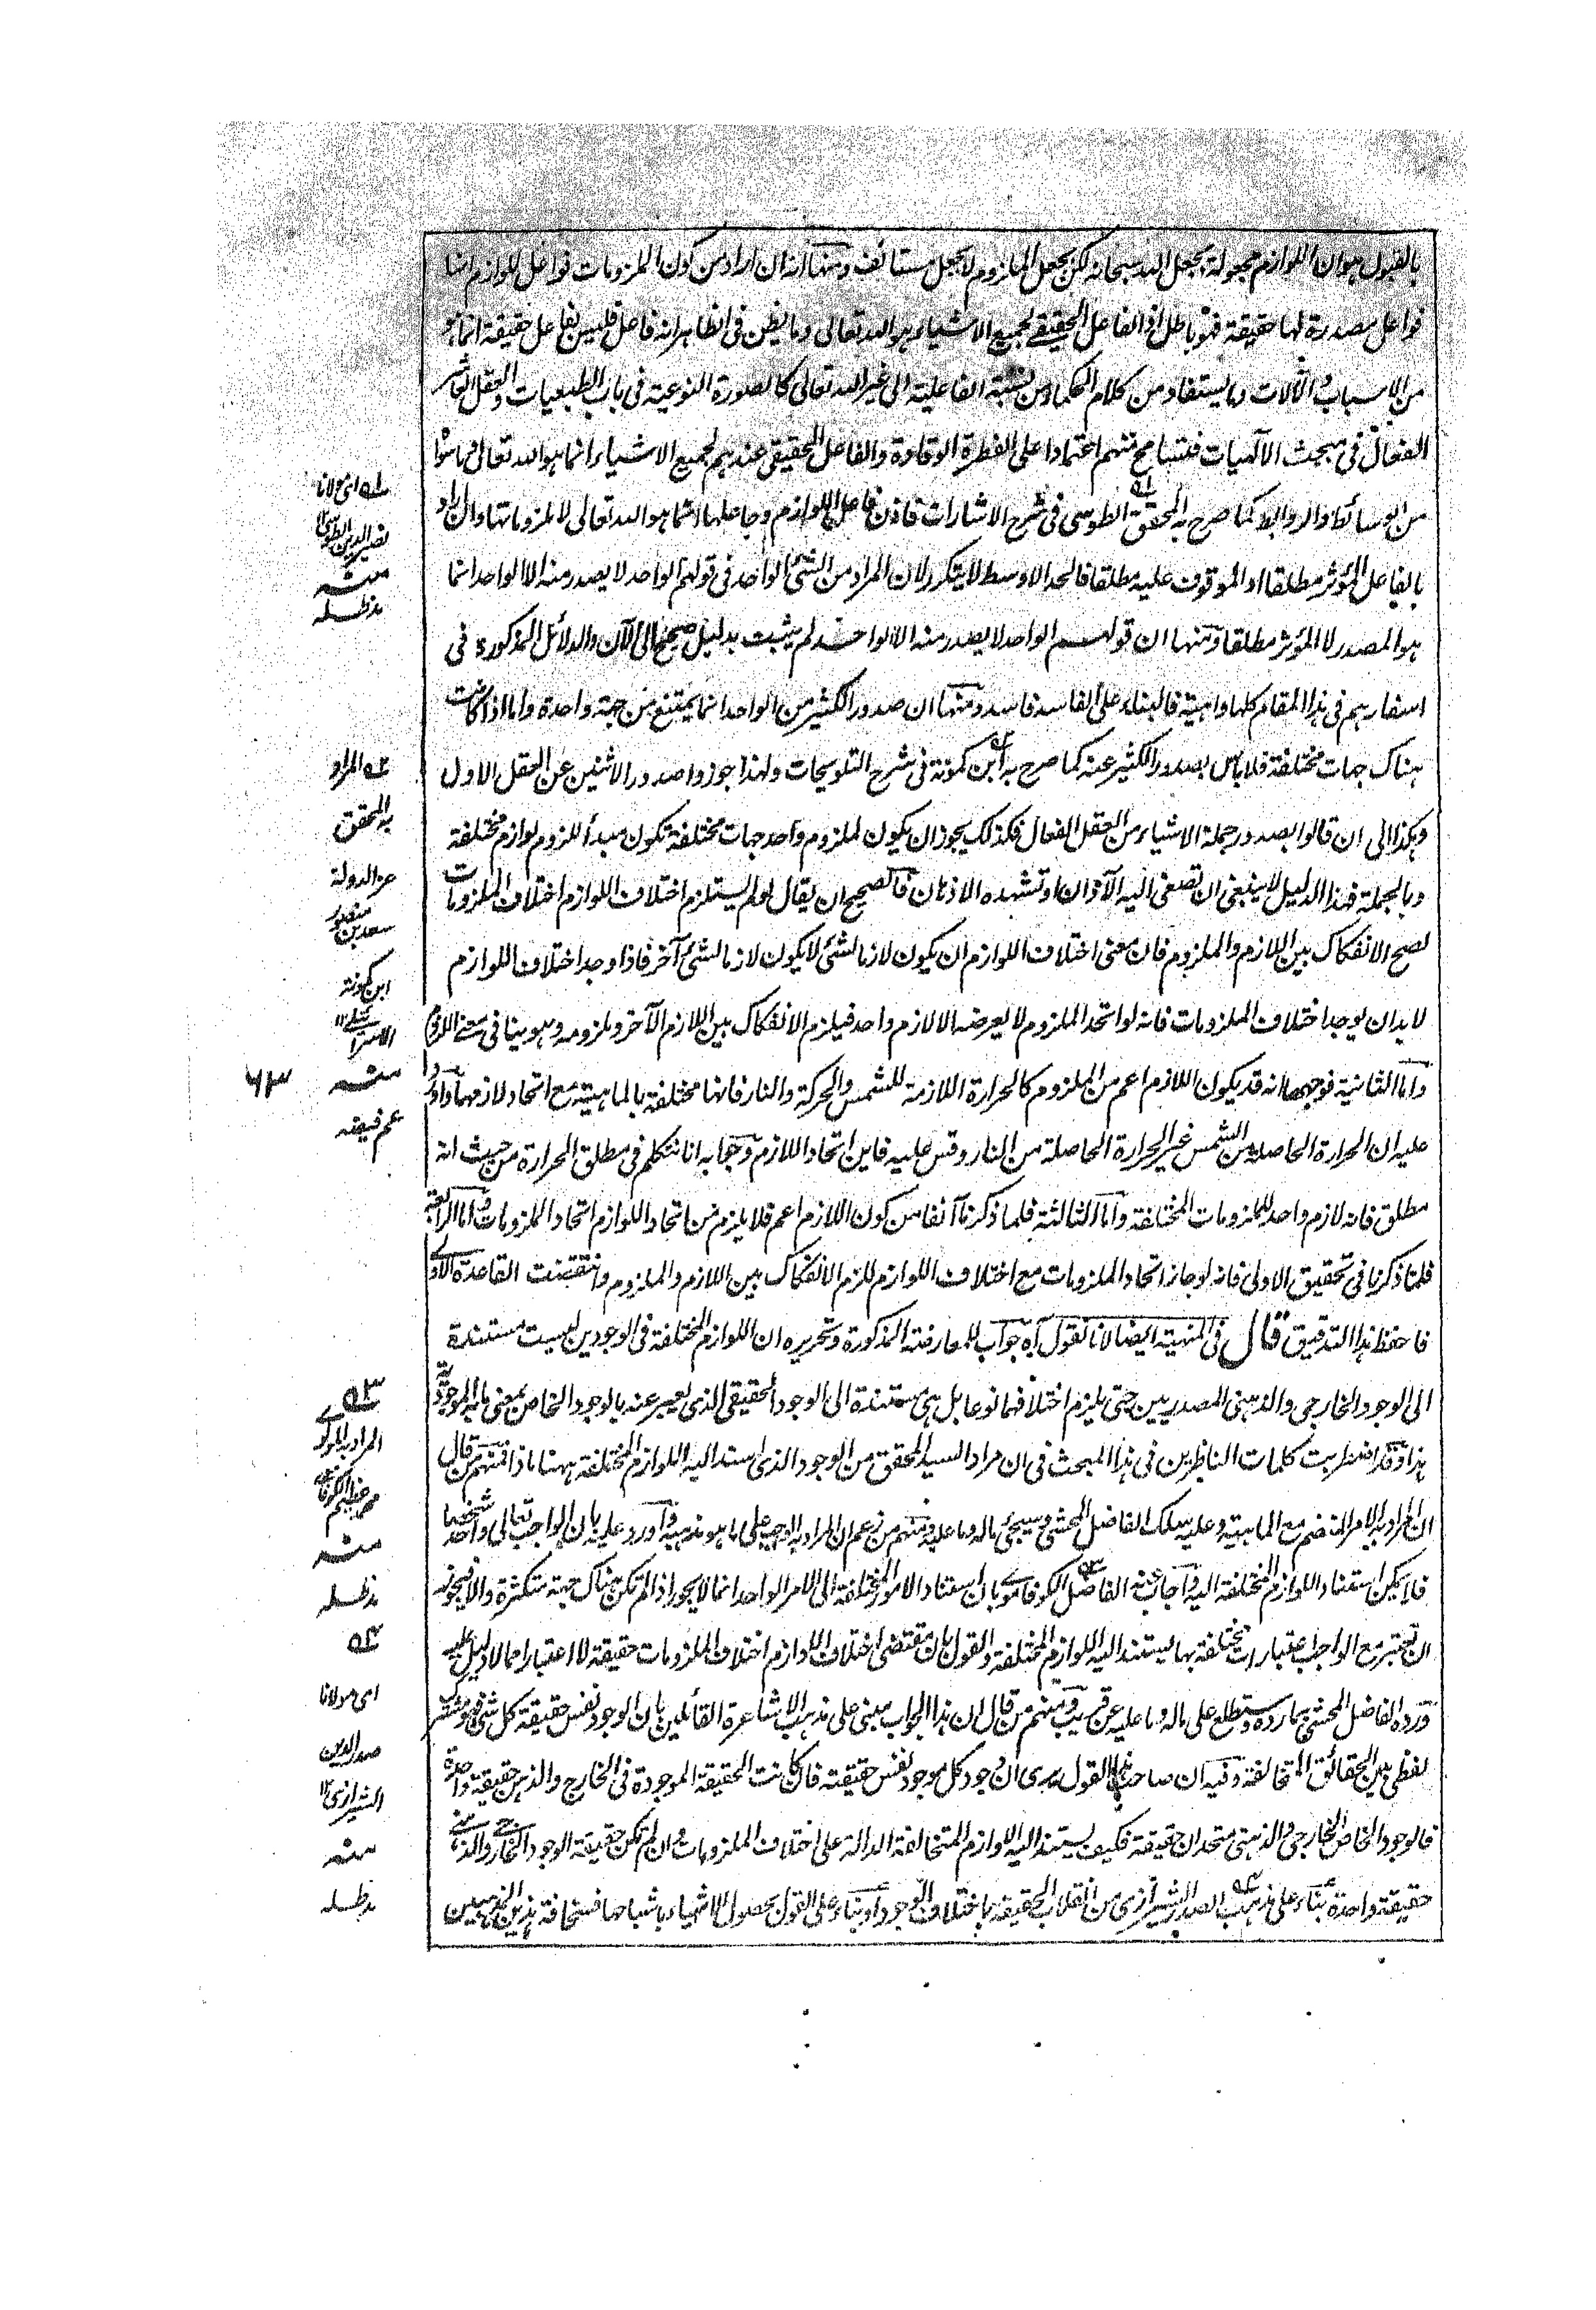 بالقبول هو ان اللوازم مجعولة بجعل الله سبحانه لكن بجعل الملزوم لا بجعل مستانف ومنها انه ان اراد من كون الملزومات فواعل للوازم انها
فواعل مصدرة لها حقيقة فهو باطل اذ الفاعل الحقيقي لجميع الاشياء هو الله تعالى وما يظن في الظاهر انه فاعل فليس بفاعل حقيقة انما هو
من الاسباب والآلات وما يستفاد من كلام الحكماء من نسبة الفاعلية الى غير الله تعالى كالصورة النوعية في باب الطبعيات والعقل العاشر
الفعال في مبحث الآلهيات فتسامح منهم اعتمادا على الفطرة الوقادة والفاعل الحقيقي عندهم لجميع الاشياء انما هو الله تعالى وما سواه
من الوسائط والروابط كما صرح به المحقق الطوسي في شرح الاشارات فاذن فاعل اللوازم وجاعلها انما هو الله تعالى لا ملزوماتها وان اراد
بالفاعل المؤثر مطلقا او الموقوف عليه مطلقا فالحد الاوسط لا يتكرر لان المراد من الشئ الواحد في قولهم الواحد لا يصدر منه الا الواحد انما
هو المصدر لا المؤثر مطلقا ومنها ان قولهم الواحد لا يصدر منه الا الواحد لم يثبت بدليل صحيح الى الآن والدلائل المذكورة في
اسفارهم في هذا المقام كلها واهية فالبناء على الفاسد فاسد ومنها ان صدور الكثير من الواحد انما يمتنع من جهة واحدة واما اذا كانت
هناك جهات مختلفة فلا باس بصدور الكثير عنه كما صرح به ابن كمونة في شرح التلويحات ولهذا جوزوا صدور الاثنين عن العقل الاول
وهكذا الى ان قالوا بصدور جملة الاشياء من العقل الفعال فكذلك يجوز ان يكون لملزوم واحد جهات مختلفة تكون مبدأ للزوم لوازم مختلفة
وبالجملة فهذا الدليل لا ينبغي ان تصغى اليه الآذان او تشهده الاذهان فالصحيح ان يقال لو لم يستلزم اختلاف اللوازم اختلاف الملزومات
لصح الانفكاك بين اللازم والملزوم فان معنى اختلاف اللوازم ان يكون لازما لشئ لا يكون لازما لشئ آخر فاذا وجد اختلاف اللوازم
لا بد ان يوجد اختلاف الملزومات فانه لو اتحد الملزوم لا يعرضه الا لازم واحد فيلزم الانفكاك بين اللازم الآخر وملزومه وهو ينافي معنى اللزوم
واما الثانية فوجهها انه قد يكون اللازم اعم من الملزوم كالحرارة اللازمة للشمس والحركة والنار فانها مختلفة بالماهية مع اتحاد لازمها واورد
عليه ان الحرارة الحاصلة من الشمس غير الحرارة الحاصلة من النار وقس عليه فاين اتحاد اللازم وجوابه انا نتكلم في مطلق الحرارة من حيث انه
مطلق فانه لازم واحد للملزومات المختلفة واما الثالثة فلما ذكرنا آنفا من كون اللازم اعم فلا يلزم من اتحاد اللوازم اتحاد الملزومات واما الرابعة
فلما ذكرنا في تحقيق الاولى فانه لو جاز اتحاد الملزومات مع اختلاف اللوازم للزم الانفكاك بين اللازم والملزوم وانتقضت القاعدة الاولى
فاحفظ هذا التدقيق قال في المنهية ايضا لانا نقول آه جواب للمعارضة المذكورة وتحريره ان اللوازم المختلفة في الوجودين ليست مستندة
الى الوجود الخارجي والذهني المصدريين حتى يلزم اختلافهما نوعا بل هي مستندة الى الوجود الحقيقي الذي يعبر عنه بالوجود الخاص بمعنى ما به الموجودية
هذا وقد اضطربت كلمات الناظرين في هذا المبحث في ان مراد السيد المحقق من الوجود الذي استند اليه اللوازم المختلفة ههنا ماذا فمنهم من قال
ان المراد به الامر المنضم مع الماهية وعليه سلك الفاضل المحشي وسيجئ ماله وما عليه ومنهم من زعم ان المراد به الواجب على ما هو مذهبه واورد عليه بان الواجب تعالى واحد شخصا
فلا يمكن استناد اللوازم المختلفة اليه واجاب عنه الفاضل الكوفاموي بان استناد الامور المختلفة الى الامر الواحد انما لا يجوز اذا لم تكن هناك جهة متكثرة والا فيجوز
ان تعتبر مع الواجب اعتبارات مختلفة بها يستند اليه اللوازم المختلفة والقول بان مقتضى اختلاف اللوازم اختلاف الملزومات حقيقة لا اعتبارا مما لا دليل عليه
ورده الفاضل المحشي بما رده وستطلع على ماله وما عليه عن قريب ومنهم من قال ان هذا الجواب مبني على مذهب الاشاعرة القائلين بان الوجود نفس حقيقة كل شئ فهو مشترك
لفظي بين الحقائق المتخالفة وفيه ان صاحب هذا القول يرى ان وجود كل موجود نفس حقيقته فان كانت الحقيقة الموجودة في الخارج والذهن حقيقة واحدة
فالوجود الخاص الخارجي والذهني متحدان حقيقة فكيف يستند اليه اللوازم المتخالفة الدالة على اختلاف الملزومات وان لم تكن حقيقة الوجود الخارجي والذهني
حقيقة واحدة بناء على مذهب الصدر الشيرازي من انقلاب الحقيقة باختلاف الوجود او بناء على القول بحصول الاشياء باشباحها فسخافة هذين المذهبين
له اي مولانا
نصير الدين الطوسي ١٢
منه
مد ظله
له المراد
به المحقق
عز الدولة
سعد بن منصور
ابن كمونة
الاسرائيلي ١٢
منه
عم فيضه
٦٣
٥٣
المراد به المولوي
محمد عظيم الكوفاموي
منه
مد ظله
٥٤
اي مولانا
صدر الدين
الشيرازي ١٢
منه
مد ظله